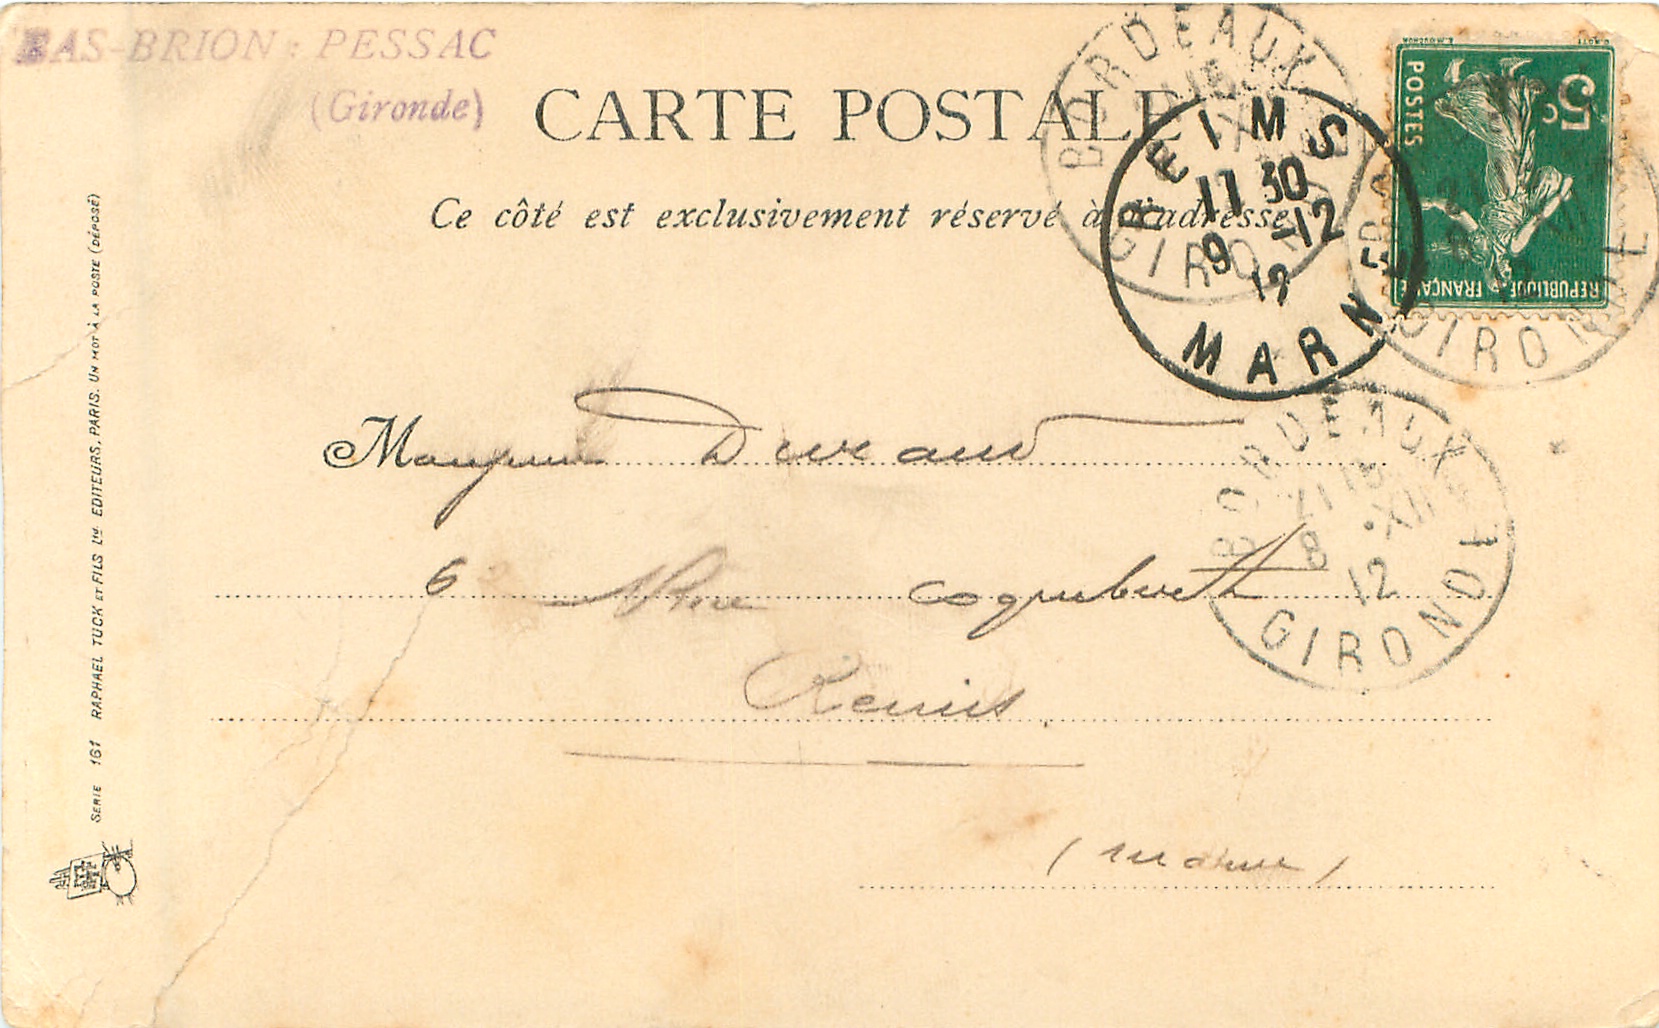 BAS-BRION : PESSAC
(Gironde)
CARTE POSTALE
Ce côté est exclusivement réservé à l'adresse
BORDEAUX
GIRONDE
REIMS
11 30
9 -12
12
MARNE
5c
POSTES
REPUBLIQUE FRANÇAISE
GIRONDE
BORDEAUX
21 15
8 XII
12
GIRONDE
Monsieur Durand
6 Rue Coquebert
Reims
(Marne)
SERIE 161 RAPHAEL TUCK ET FILS LTD EDITEURS, PARIS. UN MOT À LA POSTE (DÉPOSÉ)